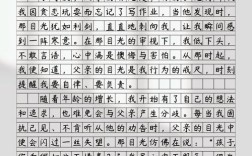 因贪玩而忘记了写作业,当他发现时,
那目光犹如利剑,直直地刺向我,让我瞬间感
到一阵寒意。在那目光的审视下,我低下头,
不敢言语,心中满是懊悔与害怕。从那时起,
我便知道,父亲的目光是我行为的戒尺,时刻
提醒我要自律、要负责。
随着年龄的增长,我开始有了自己的想法
和追求,也难免会与父亲产生分歧。每当我因
执己见,不肯听从他的劝告时,父亲的目光中
便会闪过一丝失望。那目光仿佛在说:“孩子,